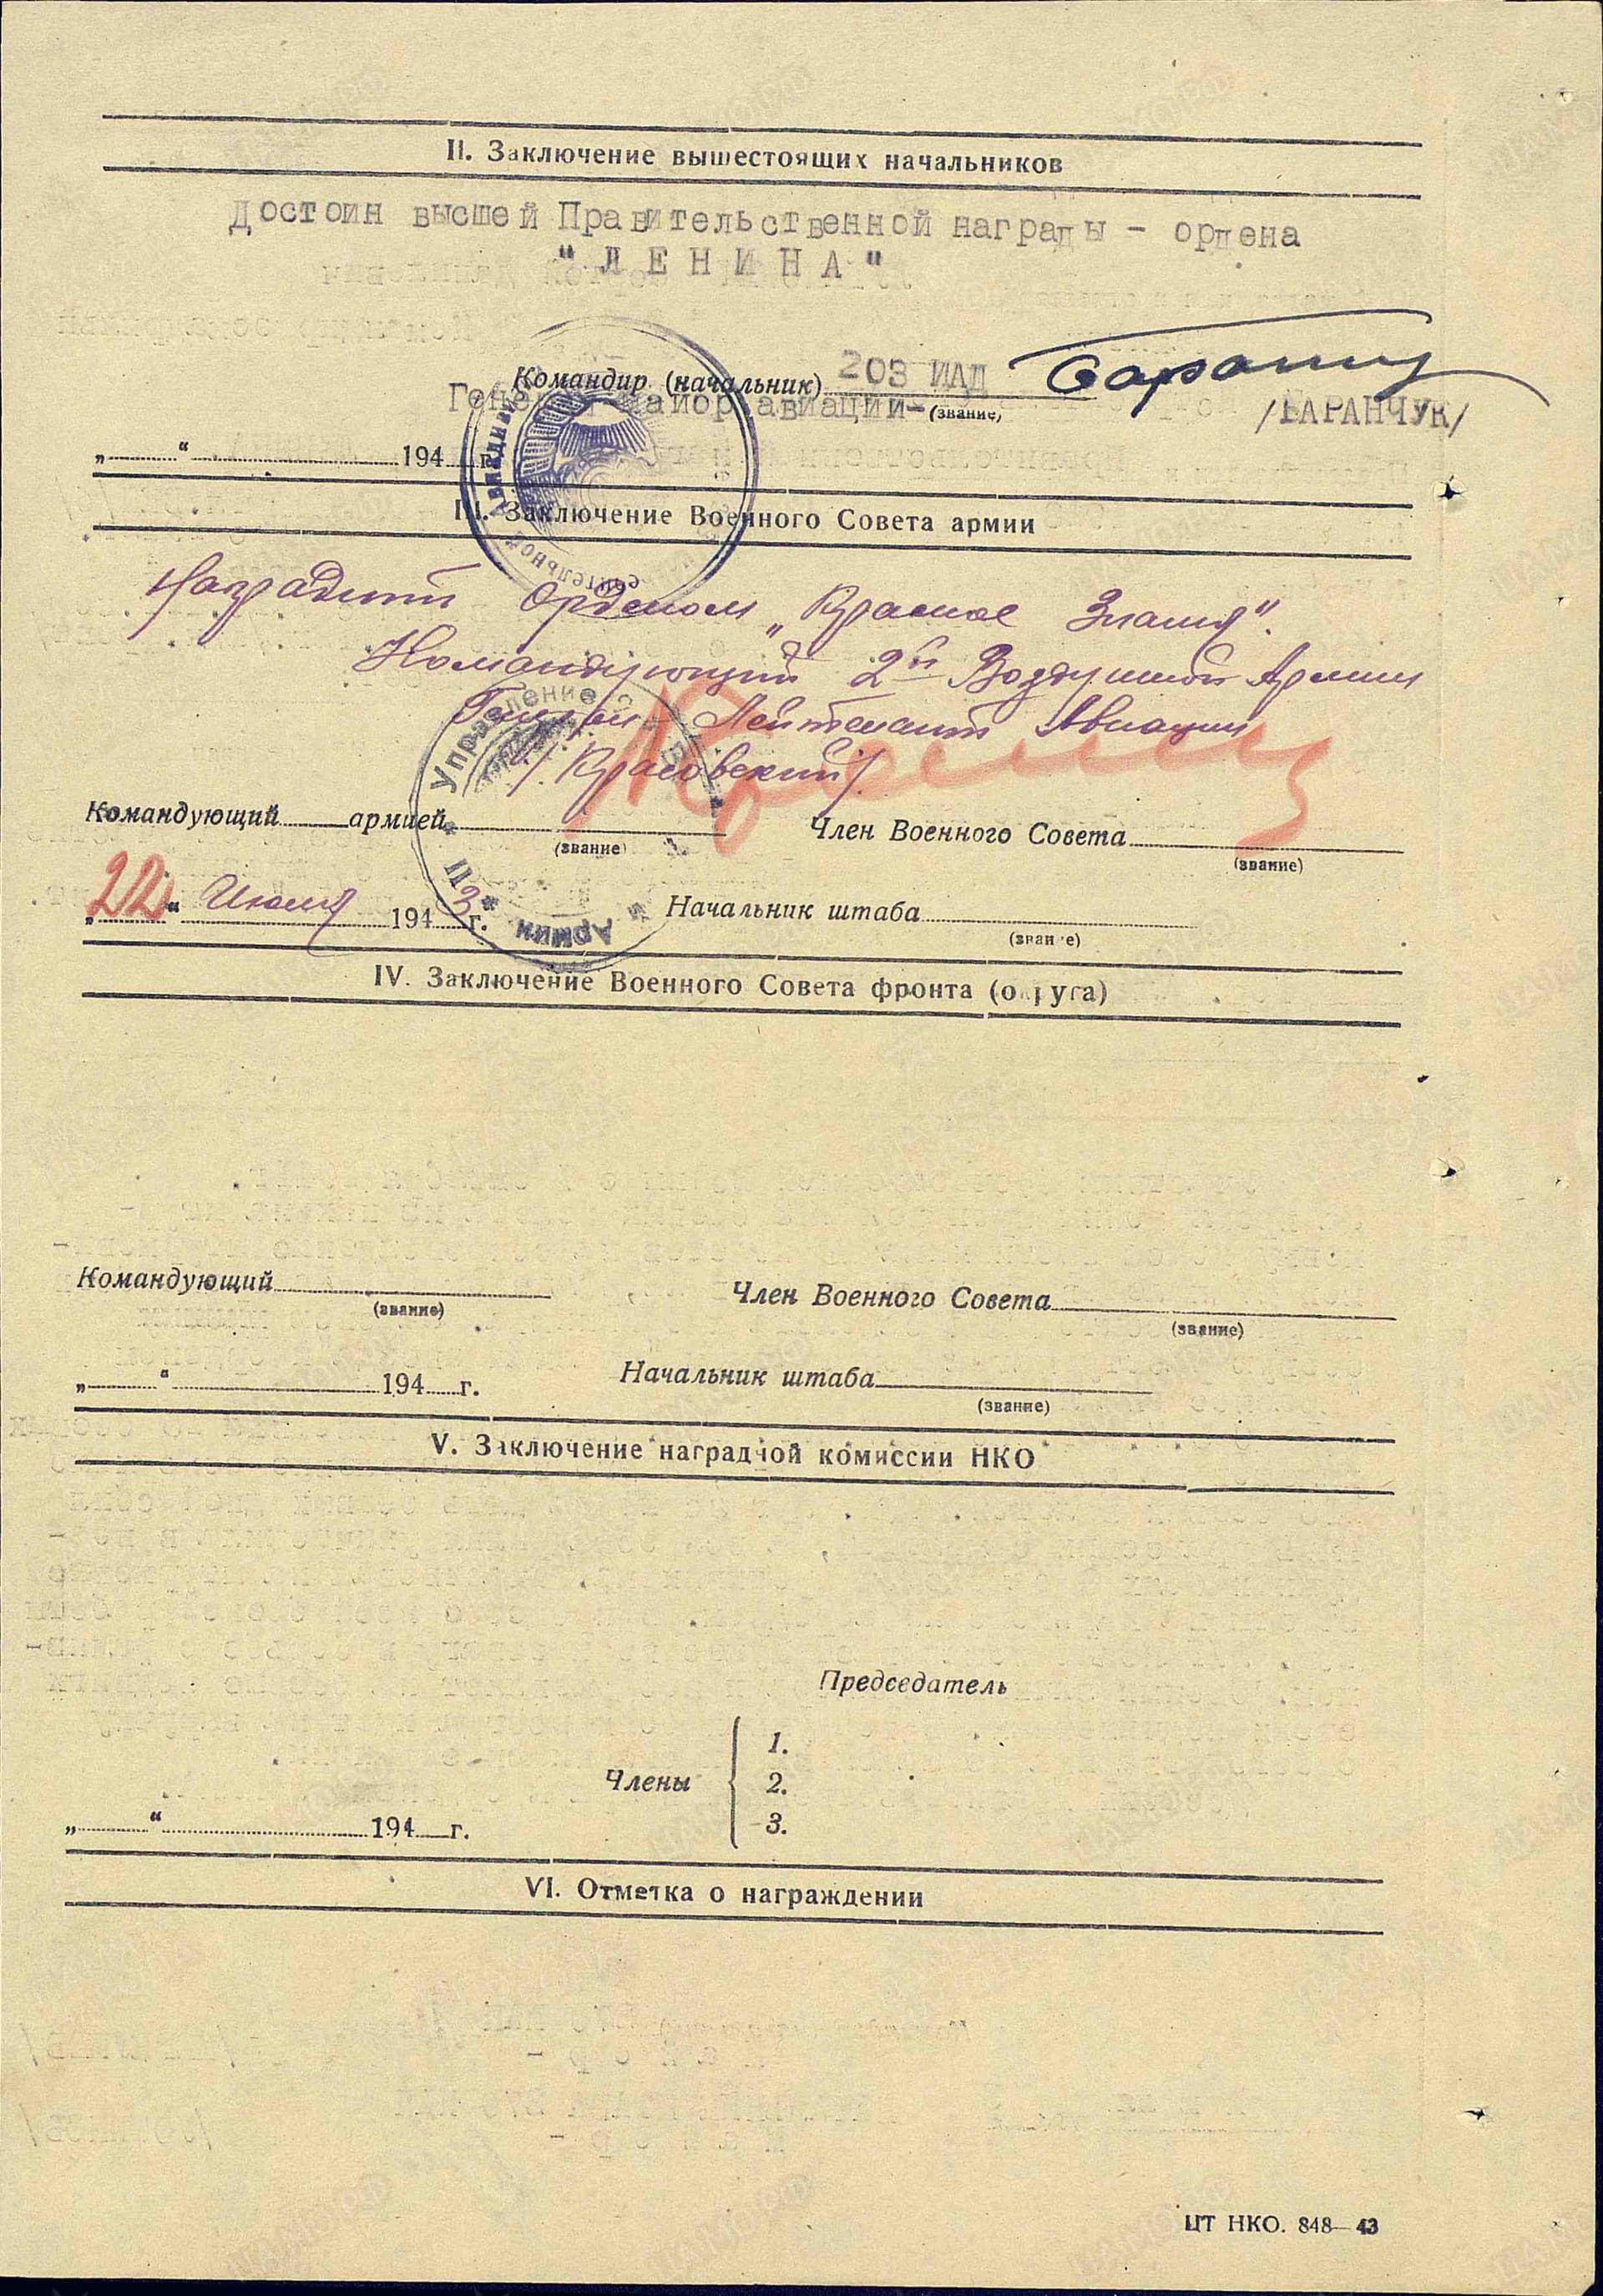 II. Заключение вышестоящих начальников
Достоин высшей Правительственной награды - ордена
"ЛЕНИНА"
Командир (начальник) 203 ИАД
Генерал-майор авиации- (звание) /БАРАНЧУК/
„ “ 194 г.
III. Заключение Военного Совета армии
Наградить Орденом „Красное Знамя".
Командующий 2й Воздушной Армии
Генерал-Лейтенант Авиации
/Красовский/
Командующий армией Член Военного Совета
(звание) (звание)
„22“ Июля 1943 г. Начальник штаба
(звание)
Управление
Армии
IV. Заключение Военного Совета фронта (округа)
Командующий Член Военного Совета
(звание) (звание)
„ “ 194 г. Начальник штаба
(звание)
V. Заключение наградной комиссии НКО
Председатель
1.
Члены 2.
3.
„ “ 194 г.
VI. Отметка о награждении
ЦТ НКО. 848—43